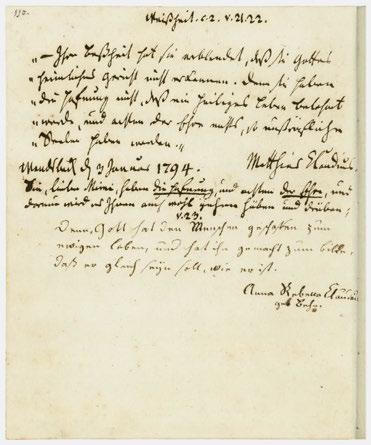 110.
Weißheit. c. 2. v. 21. 22.
„— Ihre Boßheit hat sie verblendet, daß sie Gottes
„heimliches Gericht nicht erkennen. Denn sie haben
„die Hofnung nicht, daß ein heiliges Leben belohnt
„werde, und achten der Ehre nichts, so unsträfliche
„Seelen haben werden.“
Wandsbeck d 3 Januar 1794. Matthias Claudius.
Sie, lieber haben die Hofnung, und achten der Ehre, und
darum wird es Ihnen auch wohl gehen hüben und drüben,
v. 23.
Denn, Gott hat den Menschen geschaffen zum
ewigen leben, und hat ihn gemacht zum bilde,
daß er gleich seyn soll, wie er ist.
Anna Rebecca Claudius
geb Behn